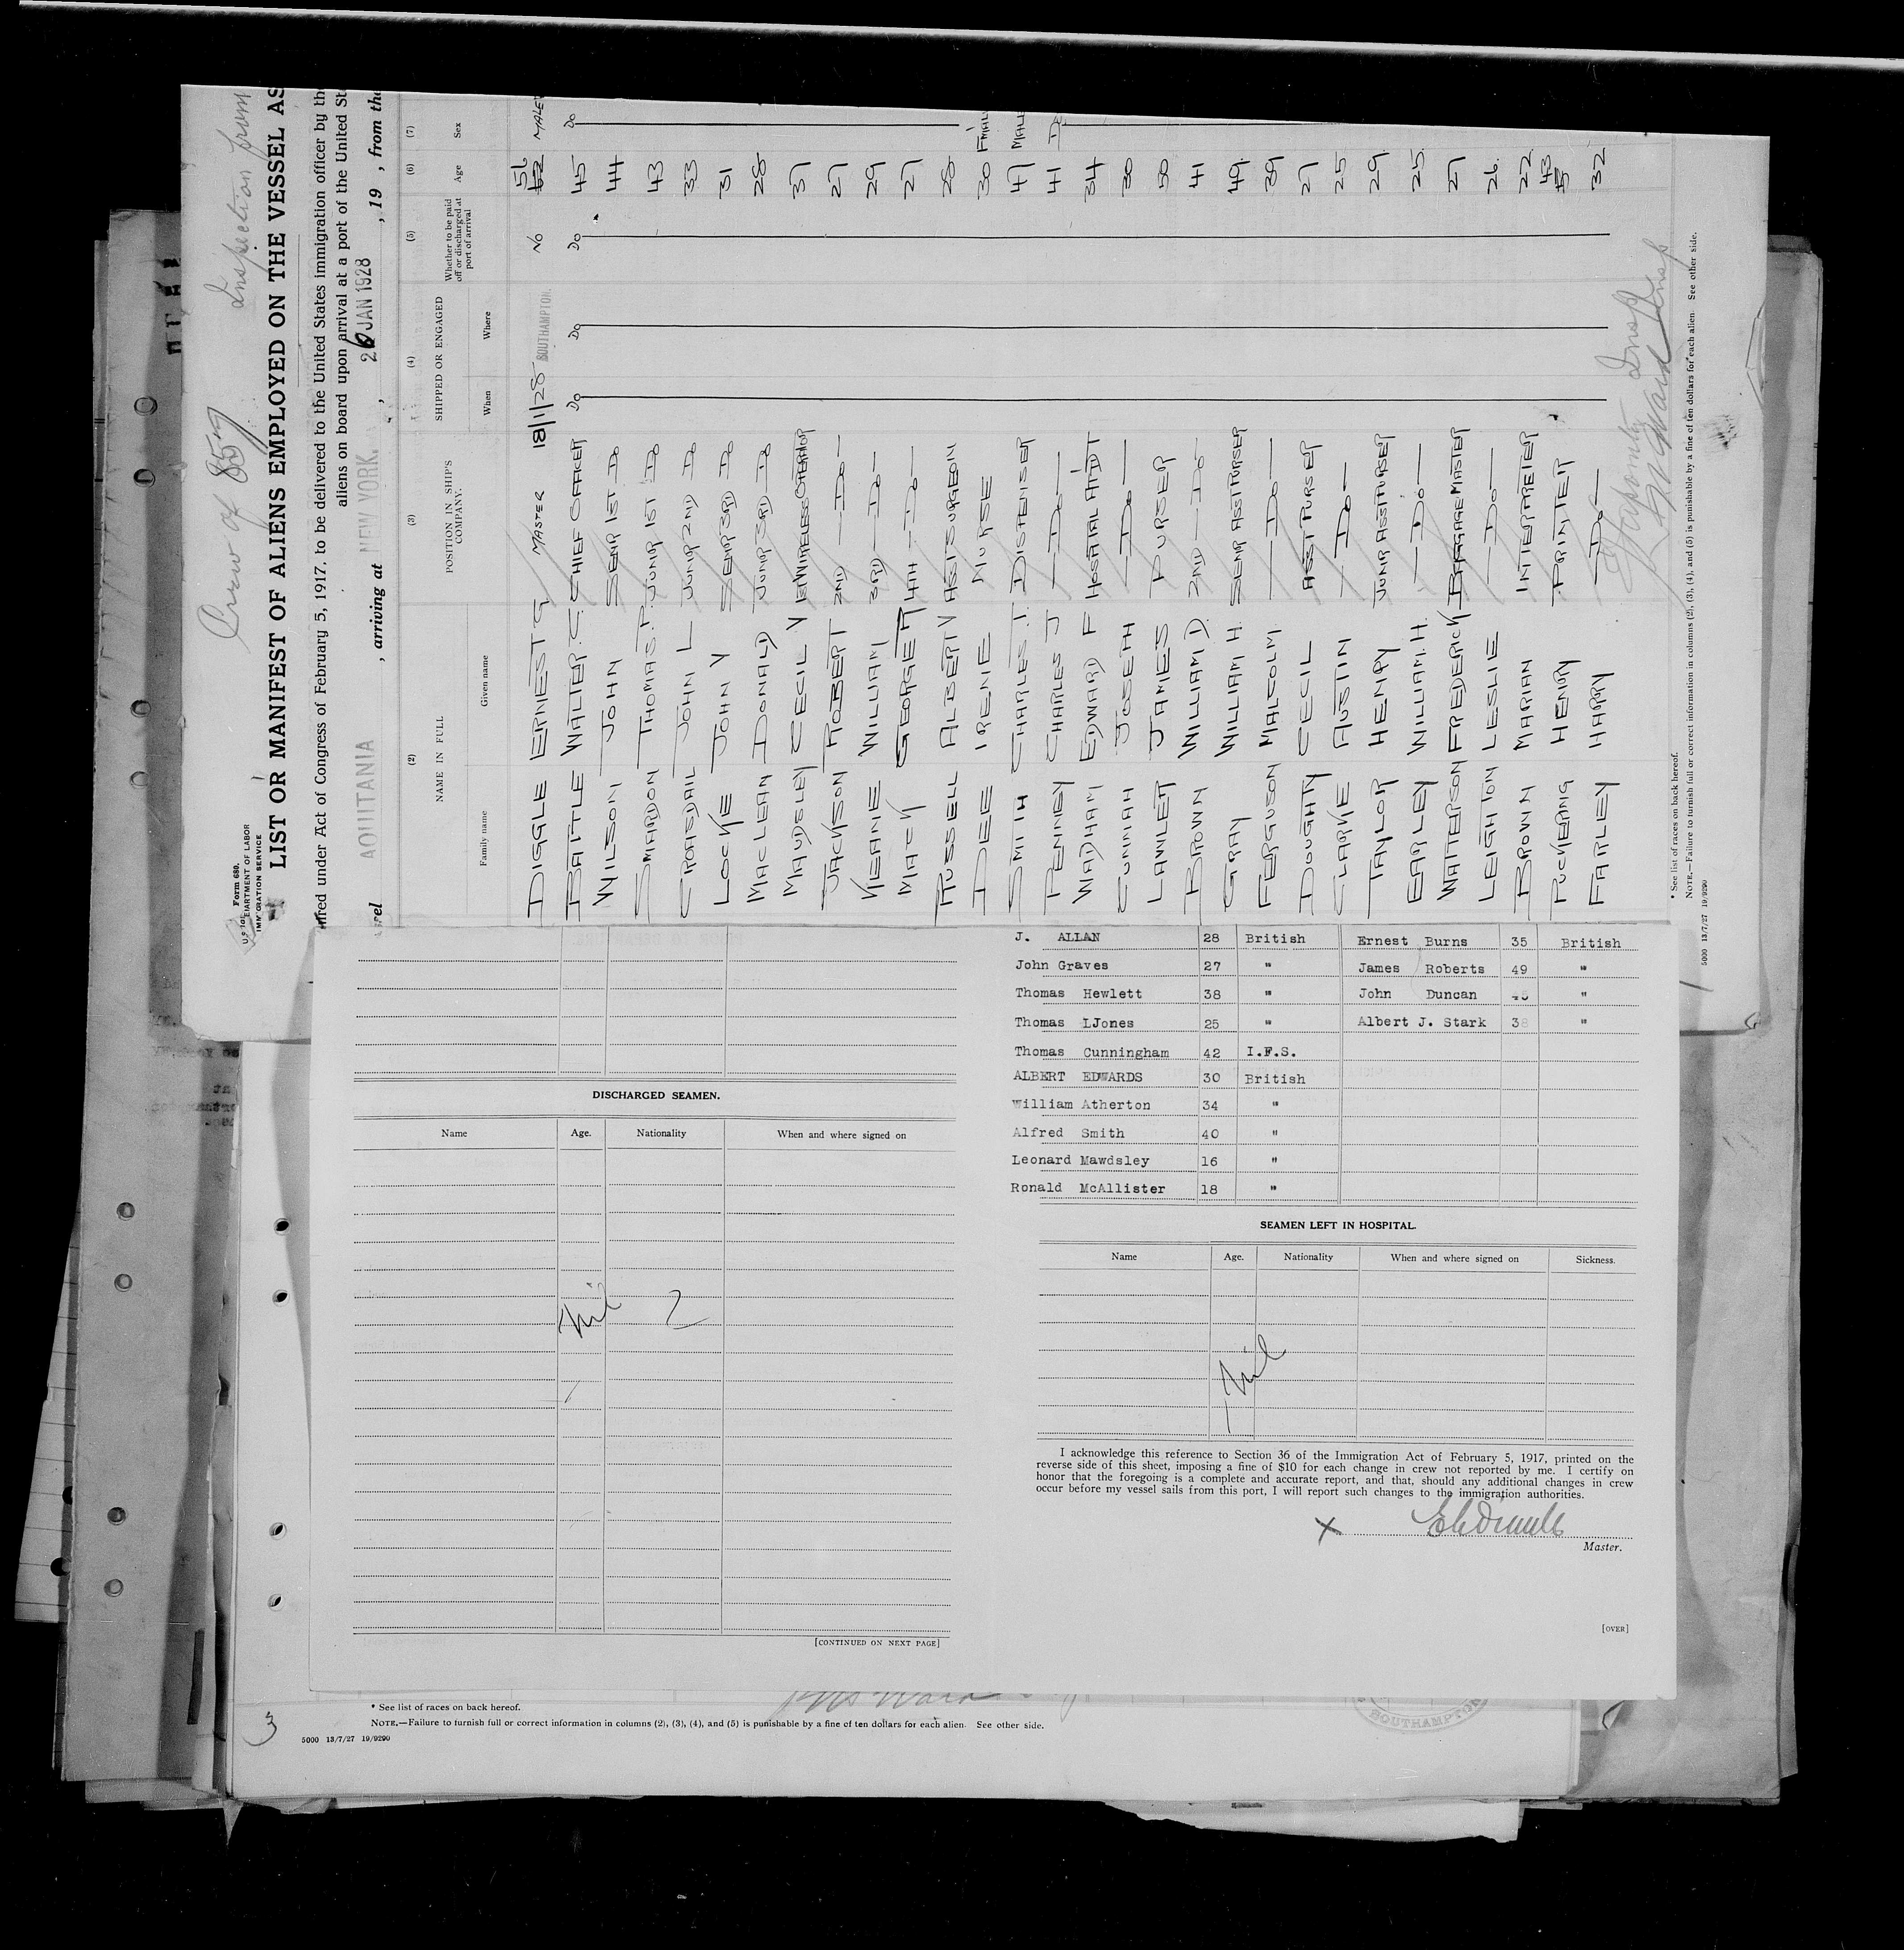 Crew of 857
Inspection from
Form 680.
DEPARTMENT OF LABOR
IMMIGRATION SERVICE
LIST OR MANIFEST OF ALIENS EMPLOYED ON THE VESSEL AS
ired under Act of Congress of February 5, 1917, to be delivered to the United States immigration officer by the
aliens on board upon arrival at a port of the United St
AQUITANIA , arriving at NEW YORK. , 26 JAN 1928 , 19 , from the
(2) (3) (4) (5) (6) (7)
NAME IN FULL POSITION IN SHIP'S COMPANY. SHIPPED OR ENGAGED Whether to be paid off or discharged at port of arrival Age Sex
Family name Given name When Where
DIGGLE ERNEST G MASTER 18/1/28 SOUTHAMPTON. NO 52 51 MALE
BATTLE WALTER. C. CHIEF OFFICER DO DO DO 45 DO
WILSON JOHN SENR 1ST DO 44
SMARDON THOMAS. P. JUNR 1ST DO 43
CROASDAIL JOHN L JUNR 2ND DO 33
LOCKE JOHN Y SENR 3RD DO 31
MACLEAN DONALD JUNR 3RD DO 28
MAUDSLEY CECIL V 1ST WIRELESS OPERATOR 37
JACKSON ROBERT 2ND DO 27
KEARNE WILLIAM 3RD DO 29
MACK GEORGE R 4TH DO 27
RUSSELL ALBERT V ASST SURGEON 28
DEE IRENE NURSE 30 F'MAL
SMITH CHARLES. T. DISPENSER 47 MALE
PENNEY CHARLES J DO 41 D
WADHAM EDWARD F HOSPITAL ATTDT 34
CUNNAH JOSEPH DO 30
LAWLER JAMES PURSER 50
BROWN WILLIAM D. 2ND DO 41
GRAY WILLIAM H. SENR ASST PURSER 49
FERGUSON MALCOLM DO 39
DOUGHTY CECIL ASST PURSER 27
CLARKE AUSTIN DO 25
TAYLOR HENRY JUNR ASST PURSER 29
EARLEY WILLIAM. H. DO 25
WATTERSON FREDERICK BAGGAGE MASTER 27
LEIGHTON LESLIE DO 26
BROWN MARIAN INTERPRETER 22
PICKERING HENRY PRINTER 43
FARLEY HARRY DO 32
* See list of races on back hereof.
NOTE.—Failure to furnish full or correct information in columns (2), (3), (4), and (5) is punishable by a fine of ten dollars for each alien. See other side.
5000 13/7/27 19/9290
J. ALLAN 28 British Ernest Burns 35 British
John Graves 27 " James Roberts 49 "
Thomas Hewlett 38 " John Duncan 45 "
Thomas LJones 25 " Albert J. Stark 38 "
Thomas Cunningham 42 I.F.S.
ALBERT EDWARDS 30 British
William Atherton 34 "
Alfred Smith 40 "
Leonard Mawdsley 16 "
Ronald McAllister 18 "
DISCHARGED SEAMEN.
Name Age. Nationality When and where signed on
Nil
[CONTINUED ON NEXT PAGE]
SEAMEN LEFT IN HOSPITAL.
Name Age. Nationality When and where signed on Sickness.
Nil
I acknowledge this reference to Section 36 of the Immigration Act of February 5, 1917, printed on the
reverse side of this sheet, imposing a fine of $10 for each change in crew not reported by me. I certify on
honor that the foregoing is a complete and accurate report, and that, should any additional changes in crew
occur before my vessel sails from this port, I will report such changes to the immigration authorities.
X
Master.
[OVER]
* See list of races on back hereof.
NOTE.—Failure to furnish full or correct information in columns (2), (3), (4), and (5) is punishable by a fine of ten dollars for each alien. See other side.
5000 13/7/27 19/9290
SOUTHAMPTON
3